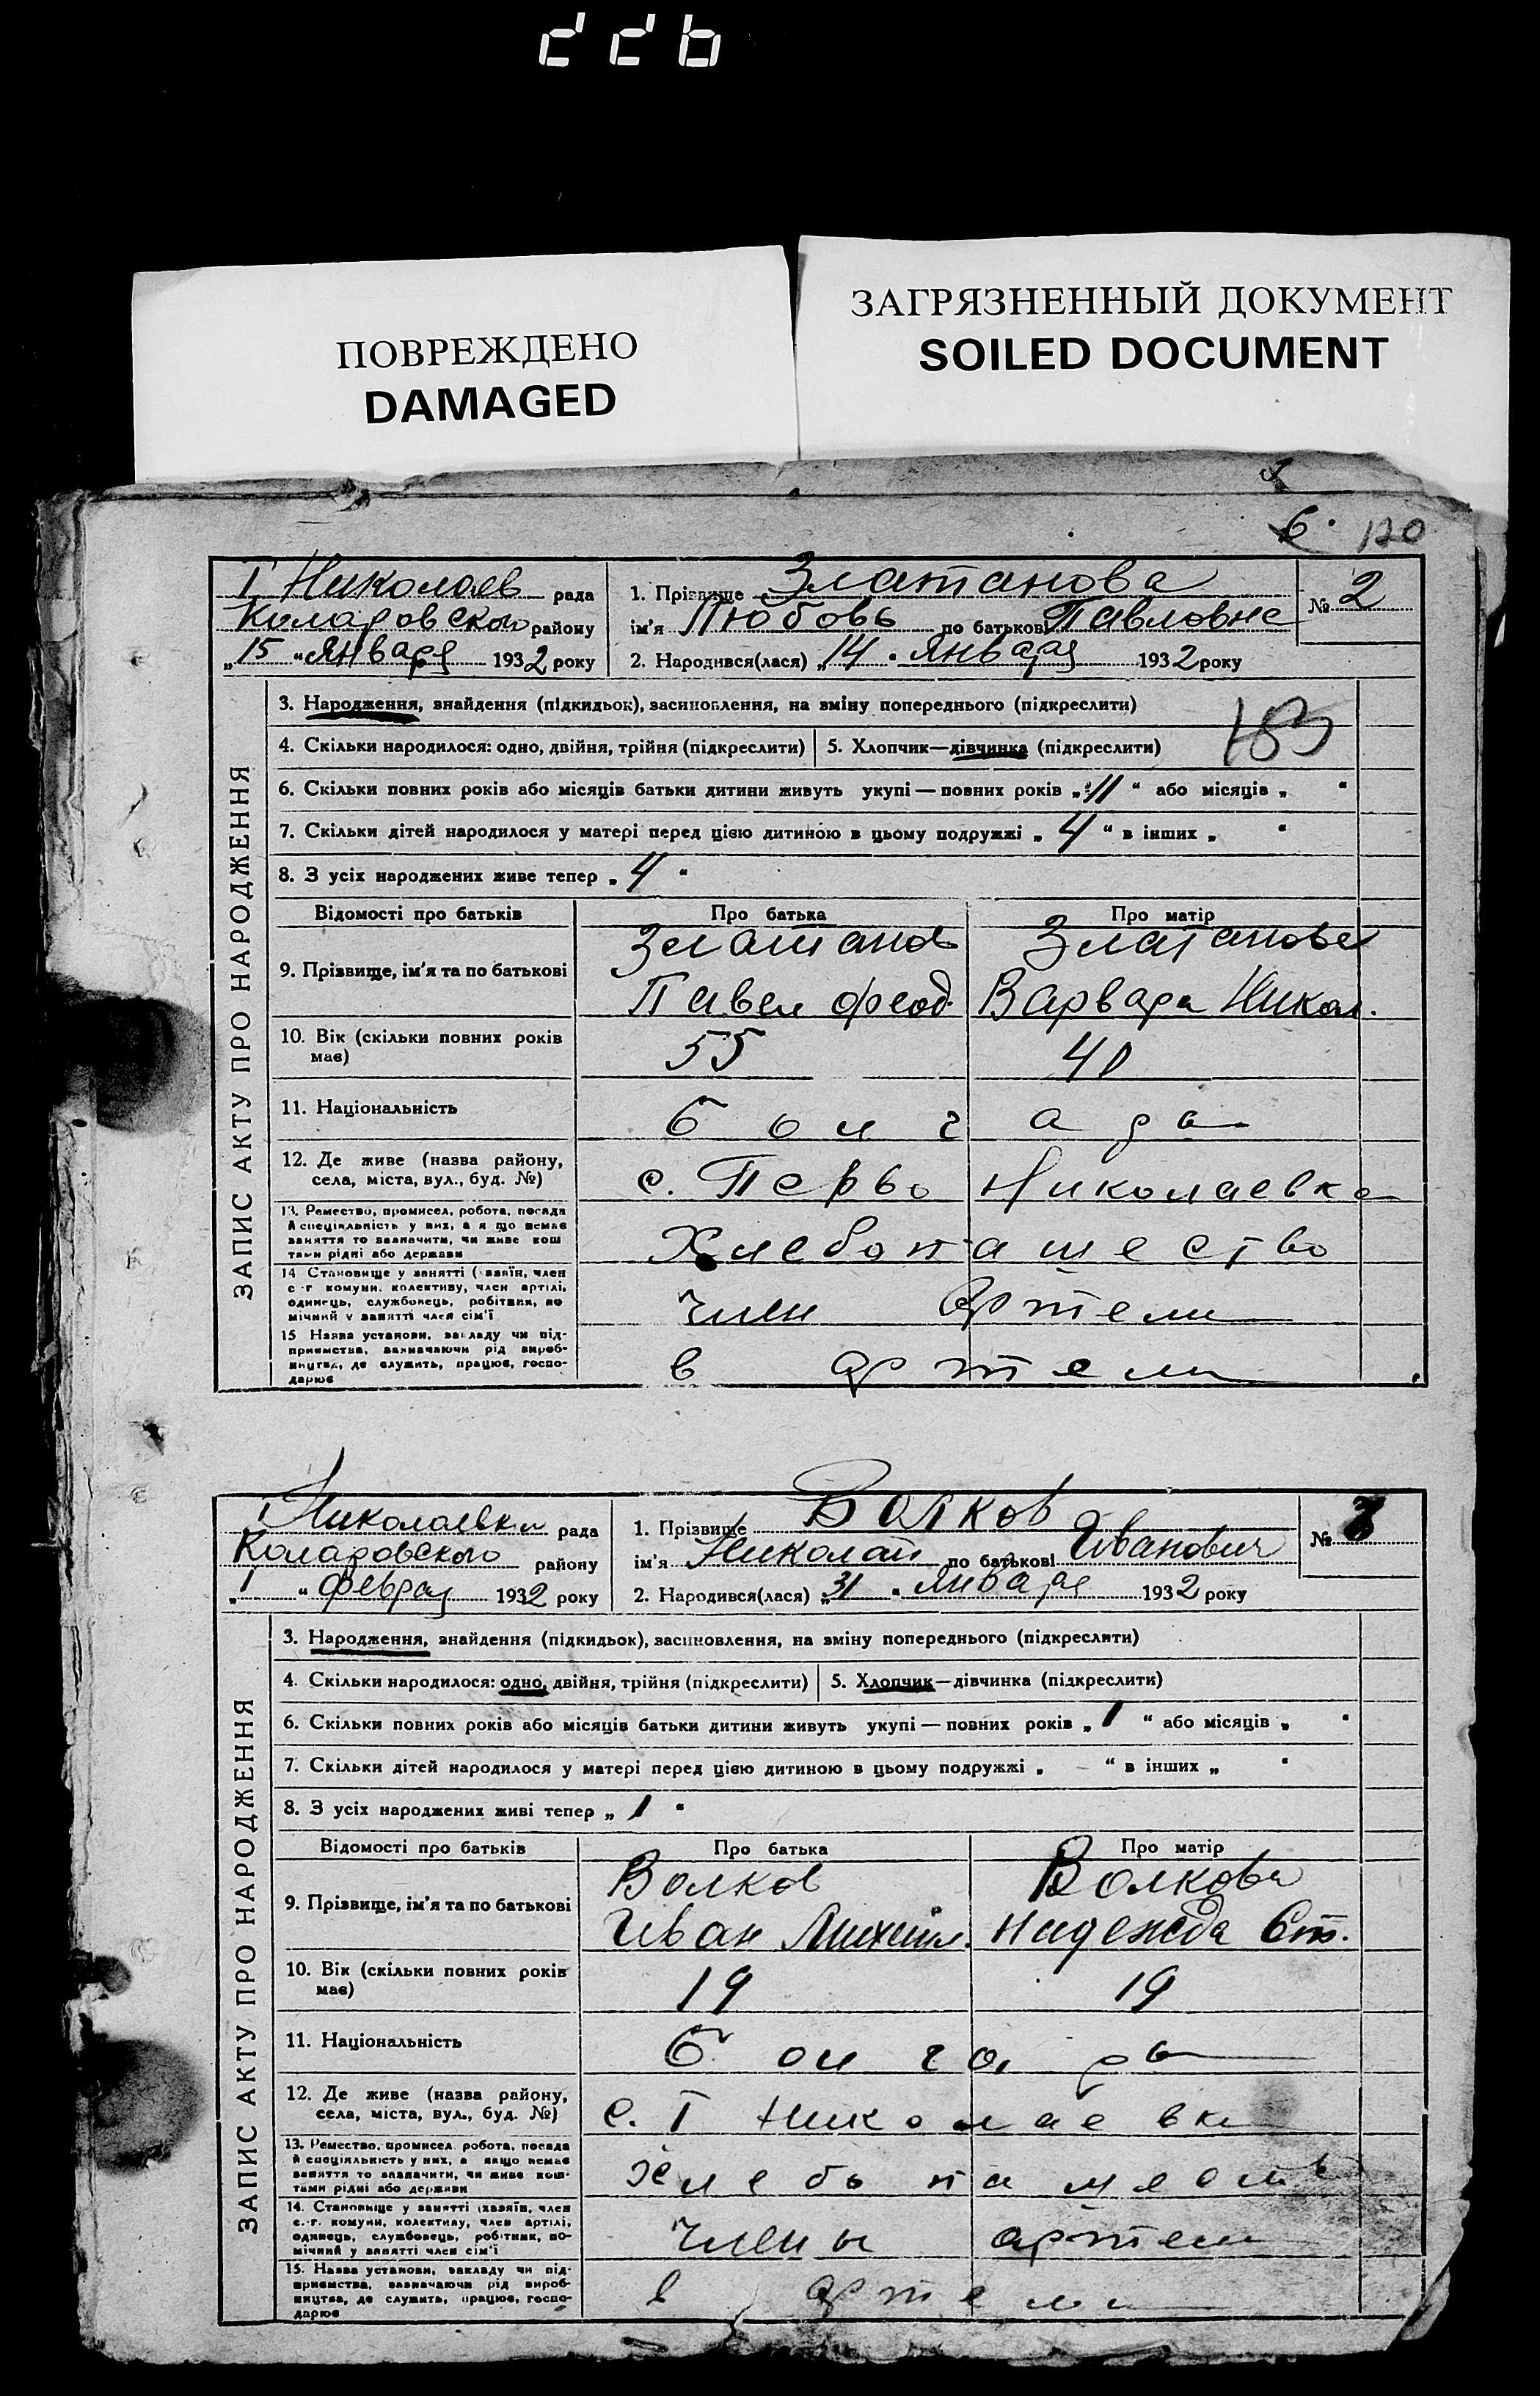 ПОВРЕЖДЕНО
DAMAGED
ЗАГРЯЗНЕННЫЙ ДОКУМЕНТ
SOILED DOCUMENT
6. 120
I Николаев рада
Коларовского району
„15“ Января 1932 року
1. Прізвище Златанова
ім'я Любовь по батькові Павловна
2. Народився(лася) „14“ Января 1932 року
№ 2
ЗАПИС АКТУ ПРО НАРОДЖЕННЯ
3. Народження, знайдення (підкидьок), засиновлення, на зміну попереднього (підкреслити)
183
4. Скільки народилося: одно, двійня, трійня (підкреслити) 5. Хлопчик—дівчинка (підкреслити)
6. Скільки повних років або місяців батьки дитини живуть укупі — повних років „11“ або місяців „ “
7. Скільки дітей народилося у матері перед цією дитиною в цьому подружжі „4“ в інших „ “
8. З усіх народжених живе тепер „4“
Відомості про батьків Про батька Про матір
9. Прізвище, ім'я та по батькові
Златанов Златанова
Павел Феод. Варвара Никол.
10. Вік (скільки повних років має) 55 40
11. Національність болгары
12. Де живе (назва району,
села, міста, вул., буд. №) с. Перво Николаевка
13. Ремество, промисел, робота, посада
й спеціяльність у них, а якщо немає
заняття то зазначити, чи живе кош
тами рідні або держави
Хлебопашество
14 Становище у занятті (хазяїн, член
с.-г комуни, колективу, член артілі,
одинець, службовець, робітник, по
мічний у занятті член сім'ї
член Артели
15 Назва установи, закладу чи під-
приємства, зазначаючи рід вироб-
ництва, де служить, працює, госпо-
дарює
в артели
I Николаевка рада
Коларовского району
„1“ февраля 1932 року
1. Прізвище Волков
ім'я Николай по батькові Иванович
2. Народився(лася) „31“ Января 1932 року
№ 3
ЗАПИС АКТУ ПРО НАРОДЖЕННЯ
3. Народження, знайдення (підкидьок), засиновлення, на зміну попереднього (підкреслити)
4. Скільки народилося: одно, двійня, трійня (підкреслити) 5. Хлопчик—дівчинка (підкреслити)
6. Скільки повних років або місяців батьки дитини живуть укупі — повних років „1“ або місяців „ “
7. Скільки дітей народилося у матері перед цією дитиною в цьому подружжі „ - “ в інших „ “
8. З усіх народжених живі тепер „1“
Відомості про батьків Про батька Про матір
9. Прізвище, ім'я та по батькові
Волков Волкова
Иван Михаил. Надежда Ст.
10. Вік (скільки повних років має) 19 19
11. Національність болгары
12. Де живе (назва району,
села, міста, вул., буд. №) с. I Николаевка
13. Ремество, промисел, робота, посада
й спеціяльність у них, а якщо немає
заняття то зазначити, чи живе кош-
тами рідні або держави
14. Становище у занятті (хазяїн, член
с.-г. комуни, колективу, член артілі,
одинець, службовець, робітник, по-
мічний у занятті член сім'ї
члены артели
15. Назва установи, закладу чи під-
приємства, зазначаючи рід вироб-
ництва, де служить, працює, госпо-
дарює
в артели